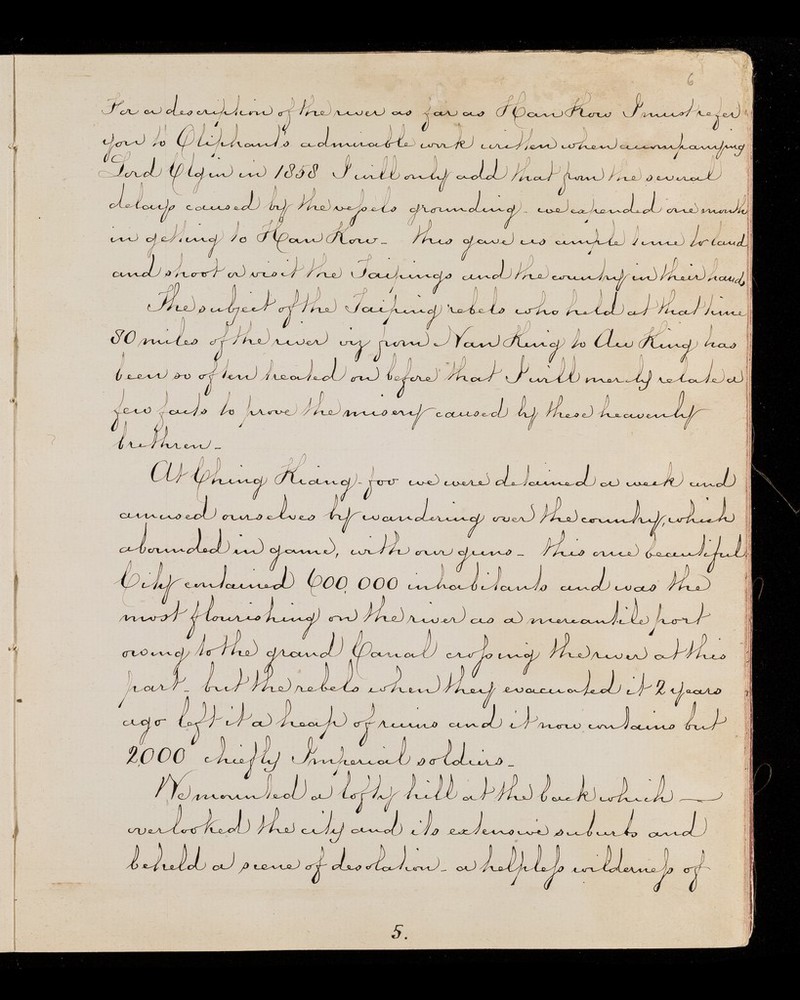 6
For a description of the river as far as Han Kow I must refer
you to Oliphant's admirable work written when accompanying
Lord Elgin in 1858 I will only add that from the several
delays caused by the vessels grounding - we expended one month
in getting to Han Kow - this gave us ample time to land
and shoot or visit the Taipings and the country in their hands
The subject of the Taiping rebels who held at that time
80 miles of the river viz from Nan King to An King has
been so often treated on before that I will merely relate a
few facts to prove the misery caused by these heavenly
brethren -
At Ching Kiang-foo we were detained a week and
amused ourselves by wandering over the country, which
abounded in game, with our guns - this once beautiful
City contained 600,000 inhabitants and was the
most flourishing on the river as a mercantile port
owing to the grand Canal crossing the river at this
part - but the rebels when they evacuated it 2 years
ago left it a heap of ruins and it now contains but
2000 chiefly Imperial soldiers -
We mounted a lofty hill at the back which —
overlooked the city and its extensive suburbs and
beheld a scene of desolation - a helpless wilderness of
5.